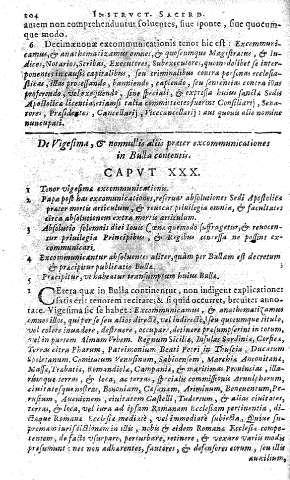 204 INSTRUCT. SACERD.
autem non comprehenduntur soluentes, siue sponte, siue quocum-
que modo.
6 Decimænonæ excommunicationis tenor hic est: Excommuni-
camus, & anathematizamus omnes, & quoscumque Magistratus, Iu-
dices, Notarios, Scribas, Executores, Subexecutores, quomodolibet se interpo-
nentes in causis capitalibus, seu criminalibus contra personas ecclesia-
sticas, illas processando, banniendo, capiendo, seu sententias contra illas
proferendo, vel exequendo, sine speciali, & expressa huius sanctæ Sedis
Apostolicæ licentia; etiamsi talia committentes fuerint Consiliarij, Sena-
tores, Præsidentes, Cancellarij, Vicecancellarij: aut quouis alio nomine
nuncupati.
De Vigesima, & nonnullis aliis præter excommunicationes
in Bulla contentis.
CAPVT XXX.
1 Tenor vigesimæ excommunicationis.
2 Papa post has excommunicationes, reseruat absolutiones Sedi Apostolicæ
præter mortis articulum, & reuocat priuilegia omnia, & facultates
circa absolutionem extra mortis articulum.
3 Absolutio solemnis diei Iouis Cœnæ quomodo suffragetur, & reuocan-
tur priuilegia Principibus, & Regibus concessa ne possint ex-
communicari.
4 Excommunicantur absoluentes aliter, quàm per Bullam est decretum
& præcipitur publicatio Bullæ.
5 Præcipitur, vt habeatur transumptum huius Bullæ.
1 CEtera quæ in Bulla continentur, non indigent explicatione:
satis erit tenorem recitare; & si quid occurret, breuiter anno-
tare. Vigesima sic se habet: Excommunicamus, & anathematizamus
omnes illos, qui per se seu alios directè, vel indirectè, seu quocumque titulo,
vel colore inuadere, destruere, occupare, detinere præsumpserint in totum,
vel in partem Almam Vrbem, Regnum Siciliæ, Insulas Sardiniæ, Corsicæ,
Terras citra Pharum, Patrimonium Beati Petri in Thuscia, Ducatum
Spoletanum, Comitatum Venaysinum, Sabinensem, Marchiæ Anconitanæ,
Massæ, Trabariæ, Romandiolæ, Campaniæ, & maritimas Prouincias, il-
larumque terras, & loca, ac terras, specialis commissionis Arnulphorum,
ciuitatesque nostras, Bononiam, Cæsenam, Ariminum, Beneuentum, Pe-
rusium, Auenionem, ciuitatem Castelli, Tudertum, & alias ciuitates,
terras, & loca, vel iura ad ipsam Romanam Ecclesiam pertinentia, di-
ctæque Romanæ Ecclesiæ mediatè, vel immediatè subiecta. Quiue su-
premam iurisdictionem in illis, nobis & eidem Romanæ Ecclesiæ compe-
tentem, de facto vsurpare, perturbare, retinere, & vexare variis modis
præsumunt: nec non adhærentes, fautores, & defensores eorum, seu illis
auxilium,